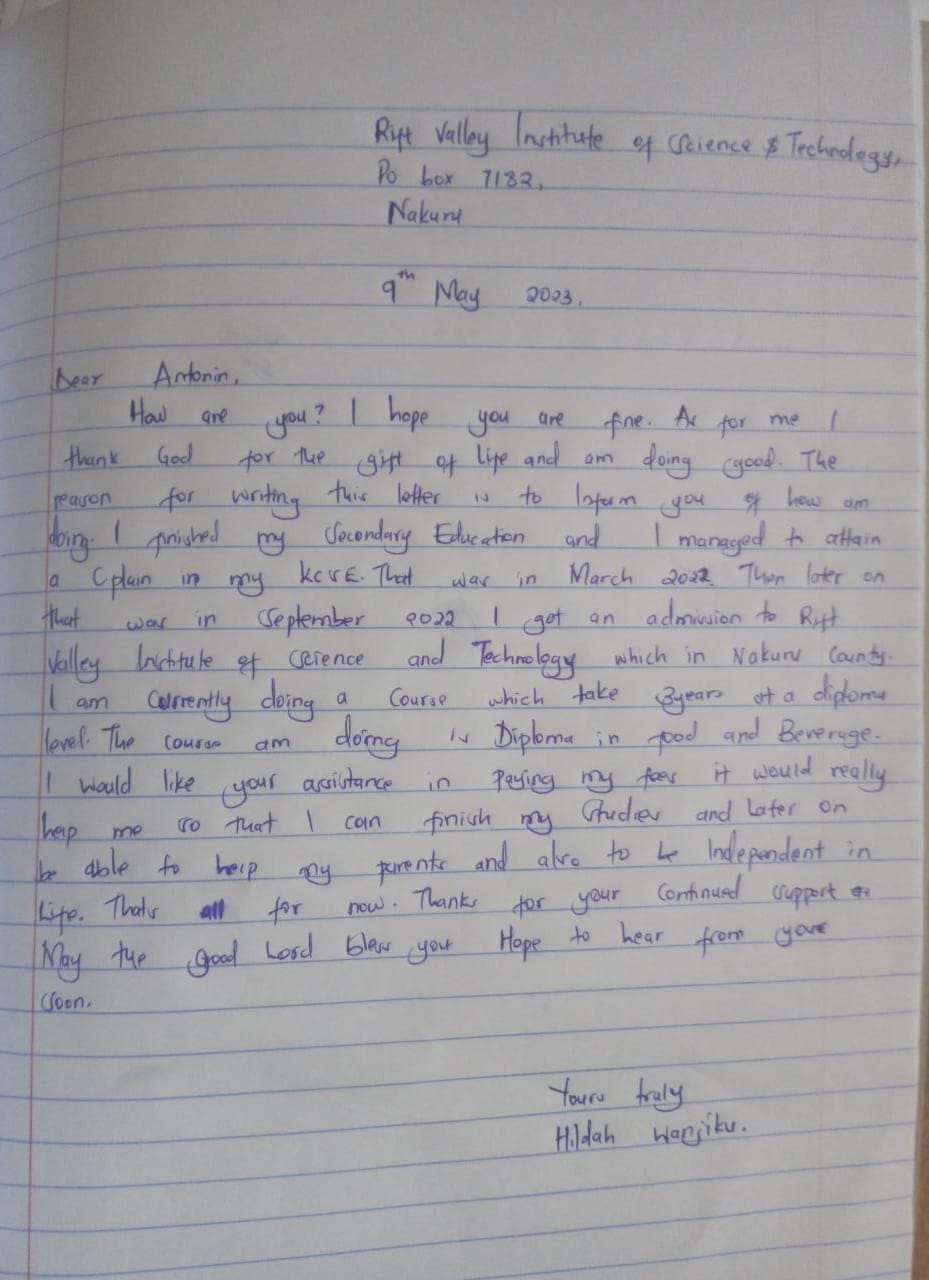 Rift Valley Institute of Science & Technology,
Po box 7182,
Nakuru
9th May 2023.
Dear Antonin,
How are you? I hope you are fine. As for me I
thank God for the gift of life and am doing good. The
reason for writing this letter is to Inform you of how am
doing. I finished my Secondary Education and I managed to attain
a C plain in my KCSE. That was in March 2022. Then later on
that was in September 2022 I got an admission to Rift
Valley Institute of Science and Technology which in Nakuru County.
I am Currently doing a Course which take 3years at a diploma
level. The course am doing is Diploma in food and Beverage.
I would like your assistance in Paying my fees it would really
help me so that I can finish my Studies and Later on
be able to help my parents and also to be Independent in
Life. Thats all for now. Thanks for your Continued support
May the good Lord bless you Hope to hear from you
soon.
Yours truly
Hildah Wanjiku.